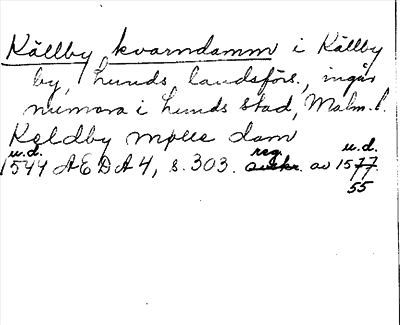 Källby kvarndamm i Källby
by, Lunds landsförs., ingår
numera i Lunds stad, Malm. l.
Keldby mølle dam
u.d. reg. u.d.
1544 AEDA 4, s. 303. av 1577
55